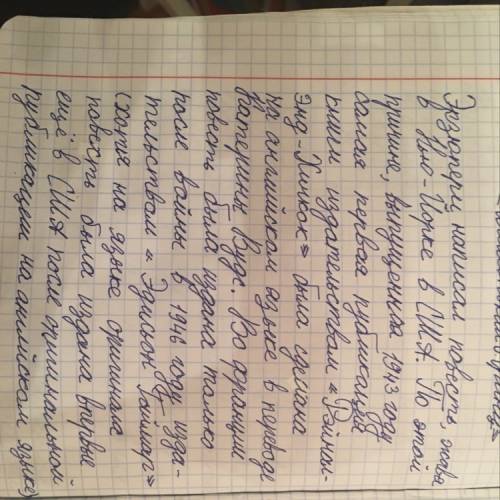 Экзюпери написал повесть, живя
в Нью-Йорке в США. По этой
причине, выпущенная 1943 году
самая первая публикация
книги издательством «Рейнал-
энд-Хичкок» была сделана
на английском языке в переводе
Катерины Вудс. Во Франции
повесть была издана только
после войны в 1946 году изда-
тельством «Эдисьон Галлмар»
(хотя на языке оригинала
повесть была издана впервые
ещё в США после оригинальной
публикации на английском языке